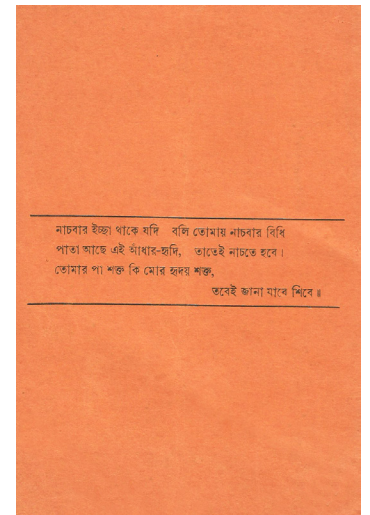 নাচবার ইচ্ছা থাকে যদি বলি তোমায় নাচবার বিধি
পাতা আছে এই আঁধার-হৃদি, তাতেই নাচতে হবে।
তোমার পা শক্ত কি মোর হৃদয় শক্ত,
তবেই জানা যাবে শিবে॥